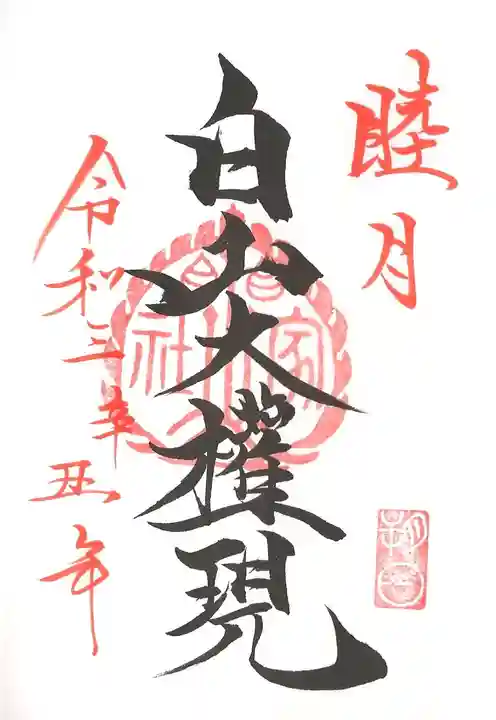 睦月
白山大権現
令和三辛丑年